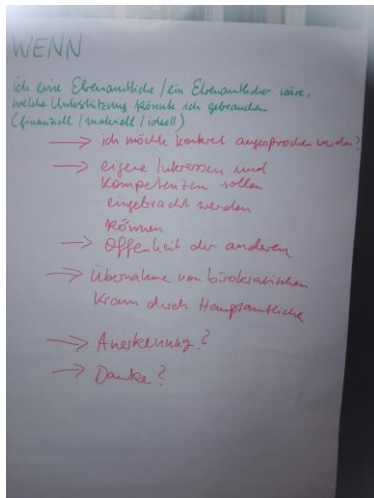 WENN
ich eine Ehrenamtliche / ein Ehrenamtlicher wäre,
welche Unterstützung könnte ich gebrauchen
(finanziell / materiell / ideell)
→ ich möchte konkret angesprochen werden?
→ eigene Interessen und
Kompetenzen sollen
eingebracht werden
können
→ Offenheit der anderen
→ Übernahme von bürokratischen
Kram durch Hauptamtliche
→ Anerkennung?
→ Danke?